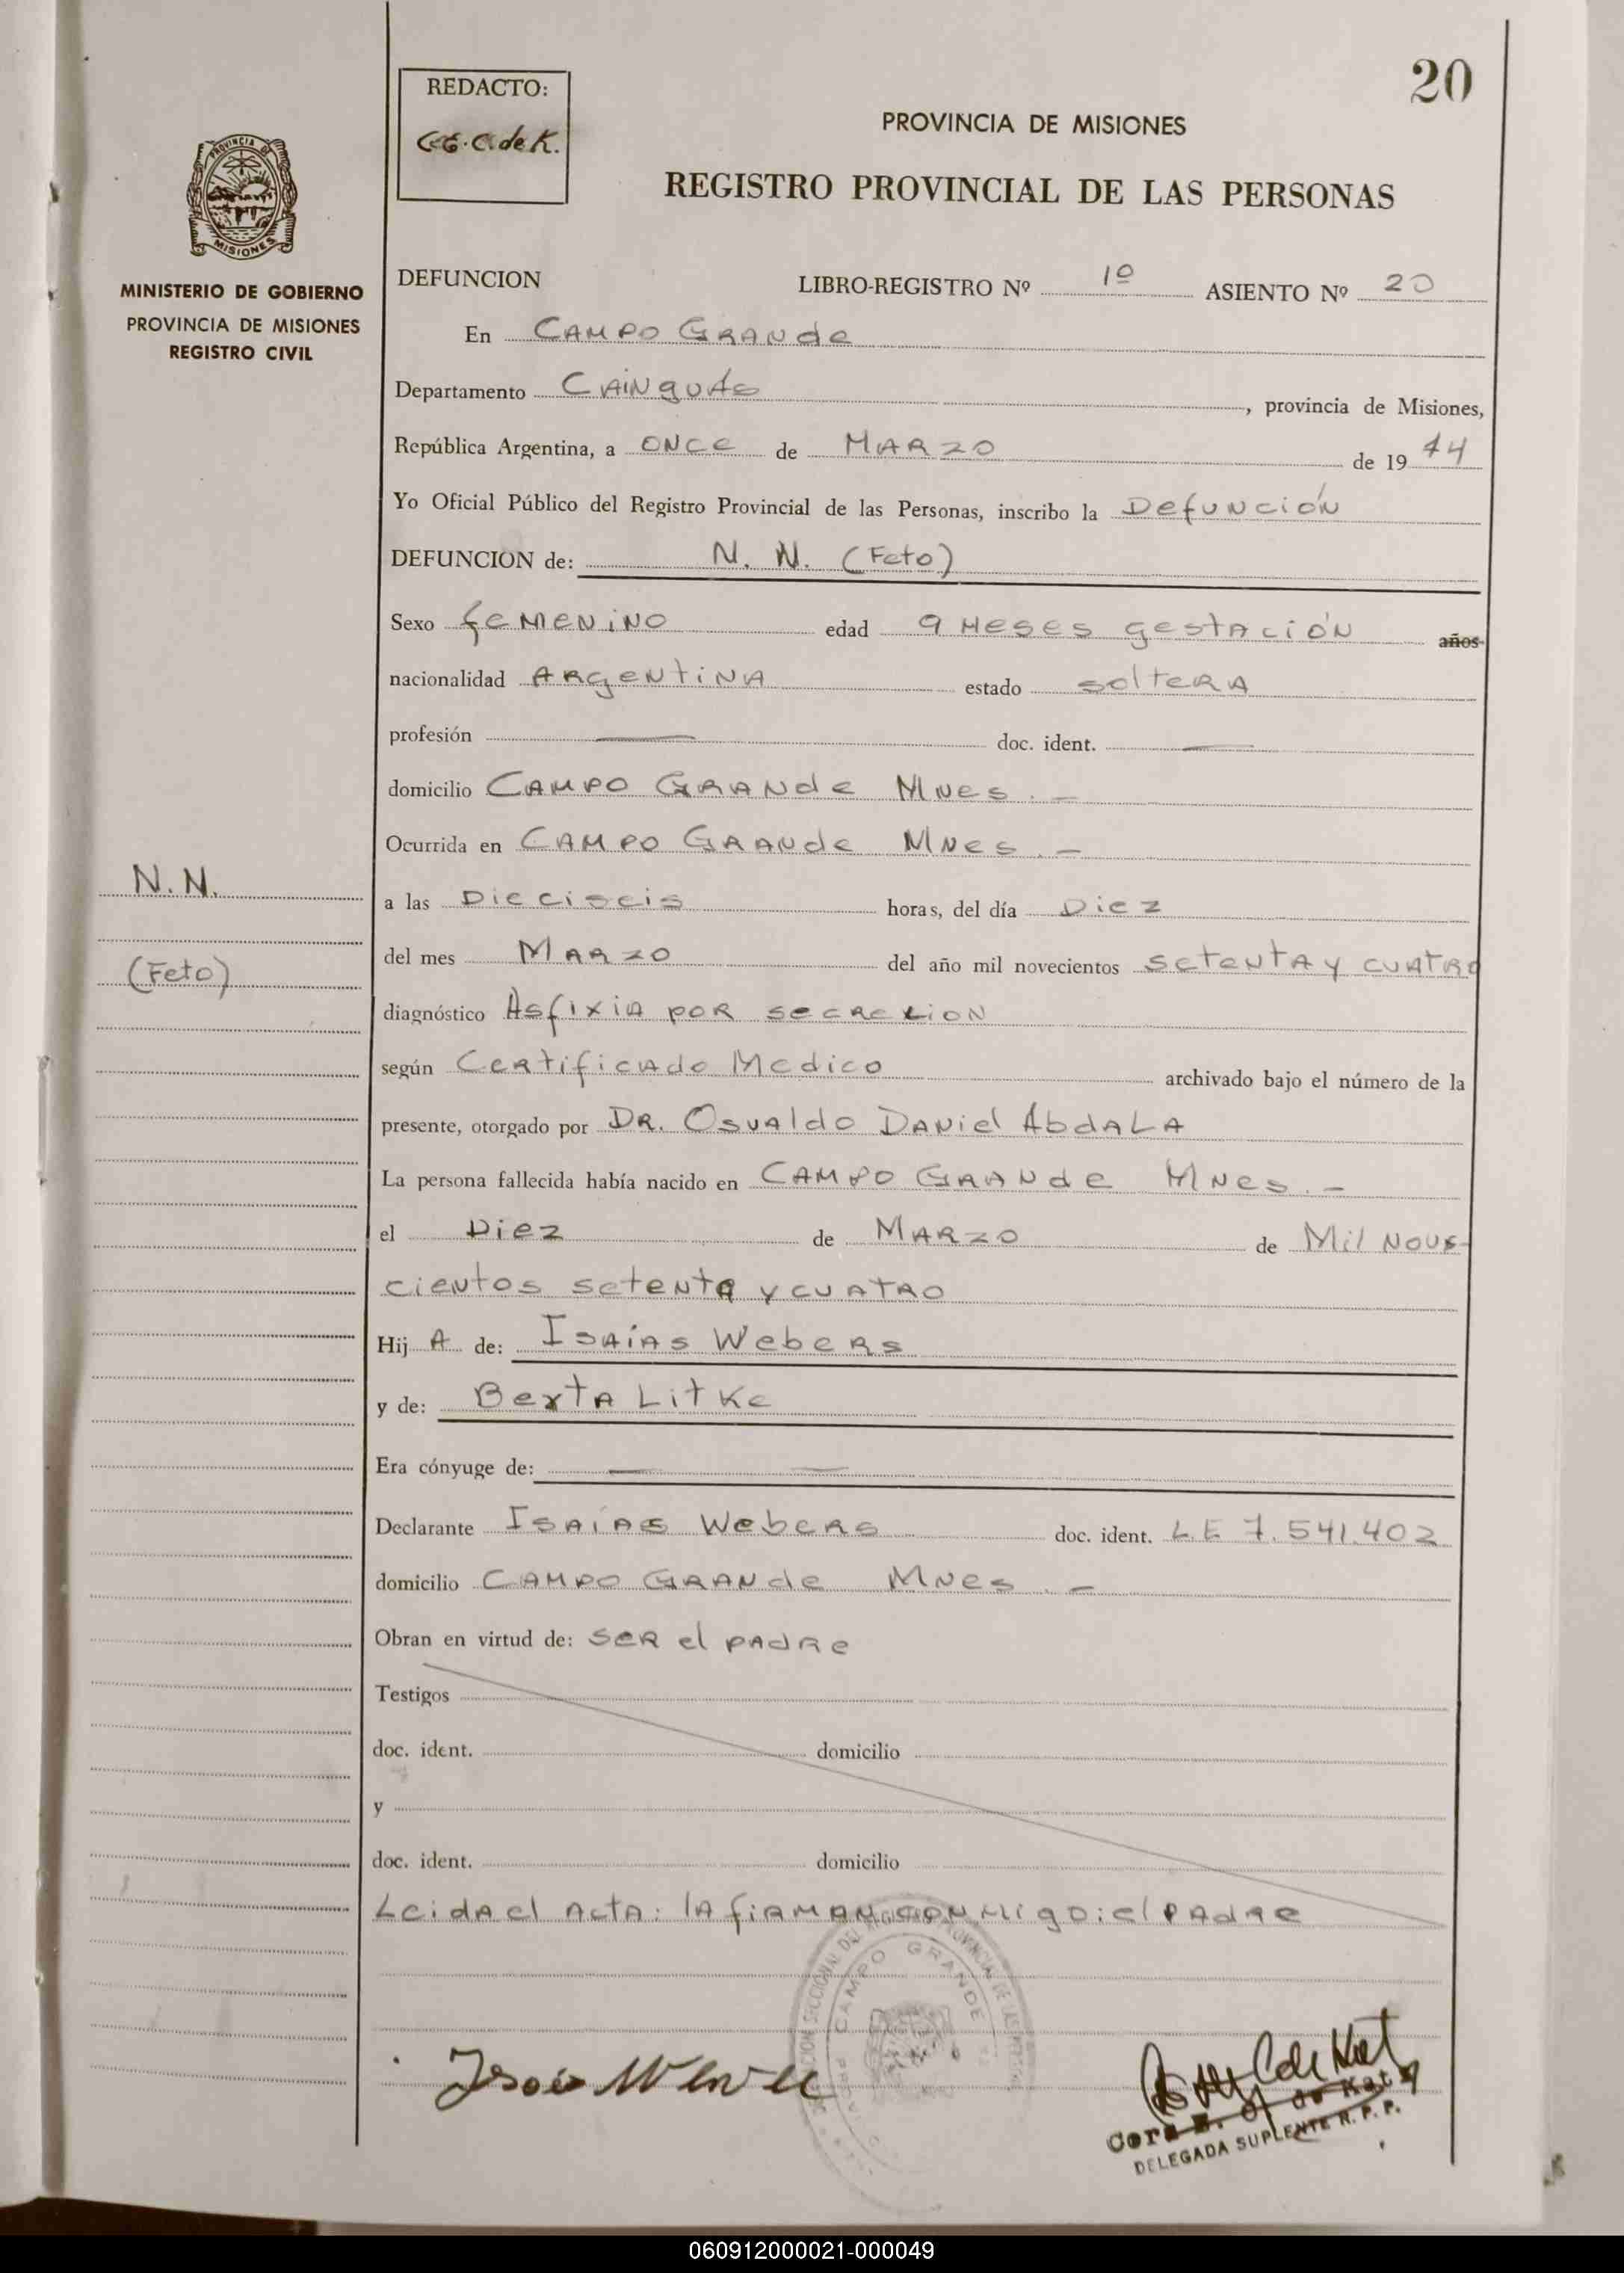 20
REDACTO:
C. de K.
PROVINCIA DE MISIONES
REGISTRO PROVINCIAL DE LAS PERSONAS
PROVINCIA DE
MISIONES
MINISTERIO DE GOBIERNO
PROVINCIA DE MISIONES
REGISTRO CIVIL
DEFUNCION LIBRO-REGISTRO Nº 1º ASIENTO Nº 20
En CAMPO GRANde
Departamento CAINguÁs, provincia de Misiones,
República Argentina, a ONCE de MARZO de 1974
Yo Oficial Público del Registro Provincial de las Personas, inscribo la Defunción
DEFUNCION de: N. N. (Feto)
Sexo femenino edad 9 Meses gestación años
nacionalidad Argentina estado soltera
profesión — doc. ident. —
domicilio Campo Grande Mnes. -
Ocurrida en Campo Grande Mnes. -
N.N.
(Feto)
a las Dieciseis horas, del día Diez
del mes Marzo del año mil novecientos setenta y cuatro
diagnóstico Asfixia por secrexion
según Certificado Medico archivado bajo el número de la
presente, otorgado por DR. Osvaldo Daniel Abdala
La persona fallecida había nacido en Campo Grande Mnes. -
el Diez de Marzo de Mil nove-
cientos setenta y cuatro
Hij A de: Isaías Webers
y de: Berta Litke
Era cónyuge de: — —
Declarante Isaías Webers doc. ident. L E 7.541.402
domicilio Campo Grande Mnes. -
Obran en virtud de: ser el padre
Testigos
doc. ident. domicilio
y
doc. ident. domicilio
Leida el Acta: la firman conmigo: el padre
CAMPO GRANDE
DELEGADA SUPLENTE R. P. P.
060912000021-000049